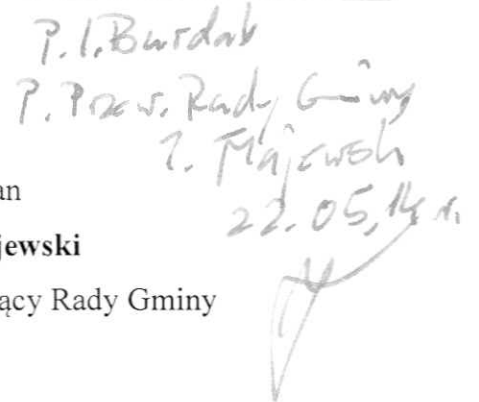 P. I. Burdak
P. Przew. Rady Gminy
Majewski
22.05.14 r.
an
jewski
ący Rady Gminy